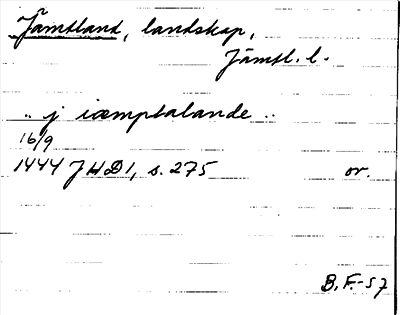 Jämtland, landskap,
Jämtl. l.
.. j iæmptalande ..
16/9
1444 JHD1, s. 275 or.
B. F. -57